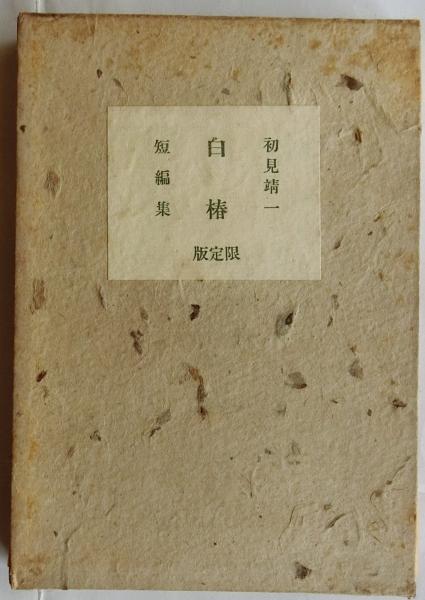 初見靖一
白椿
短編集
版定限